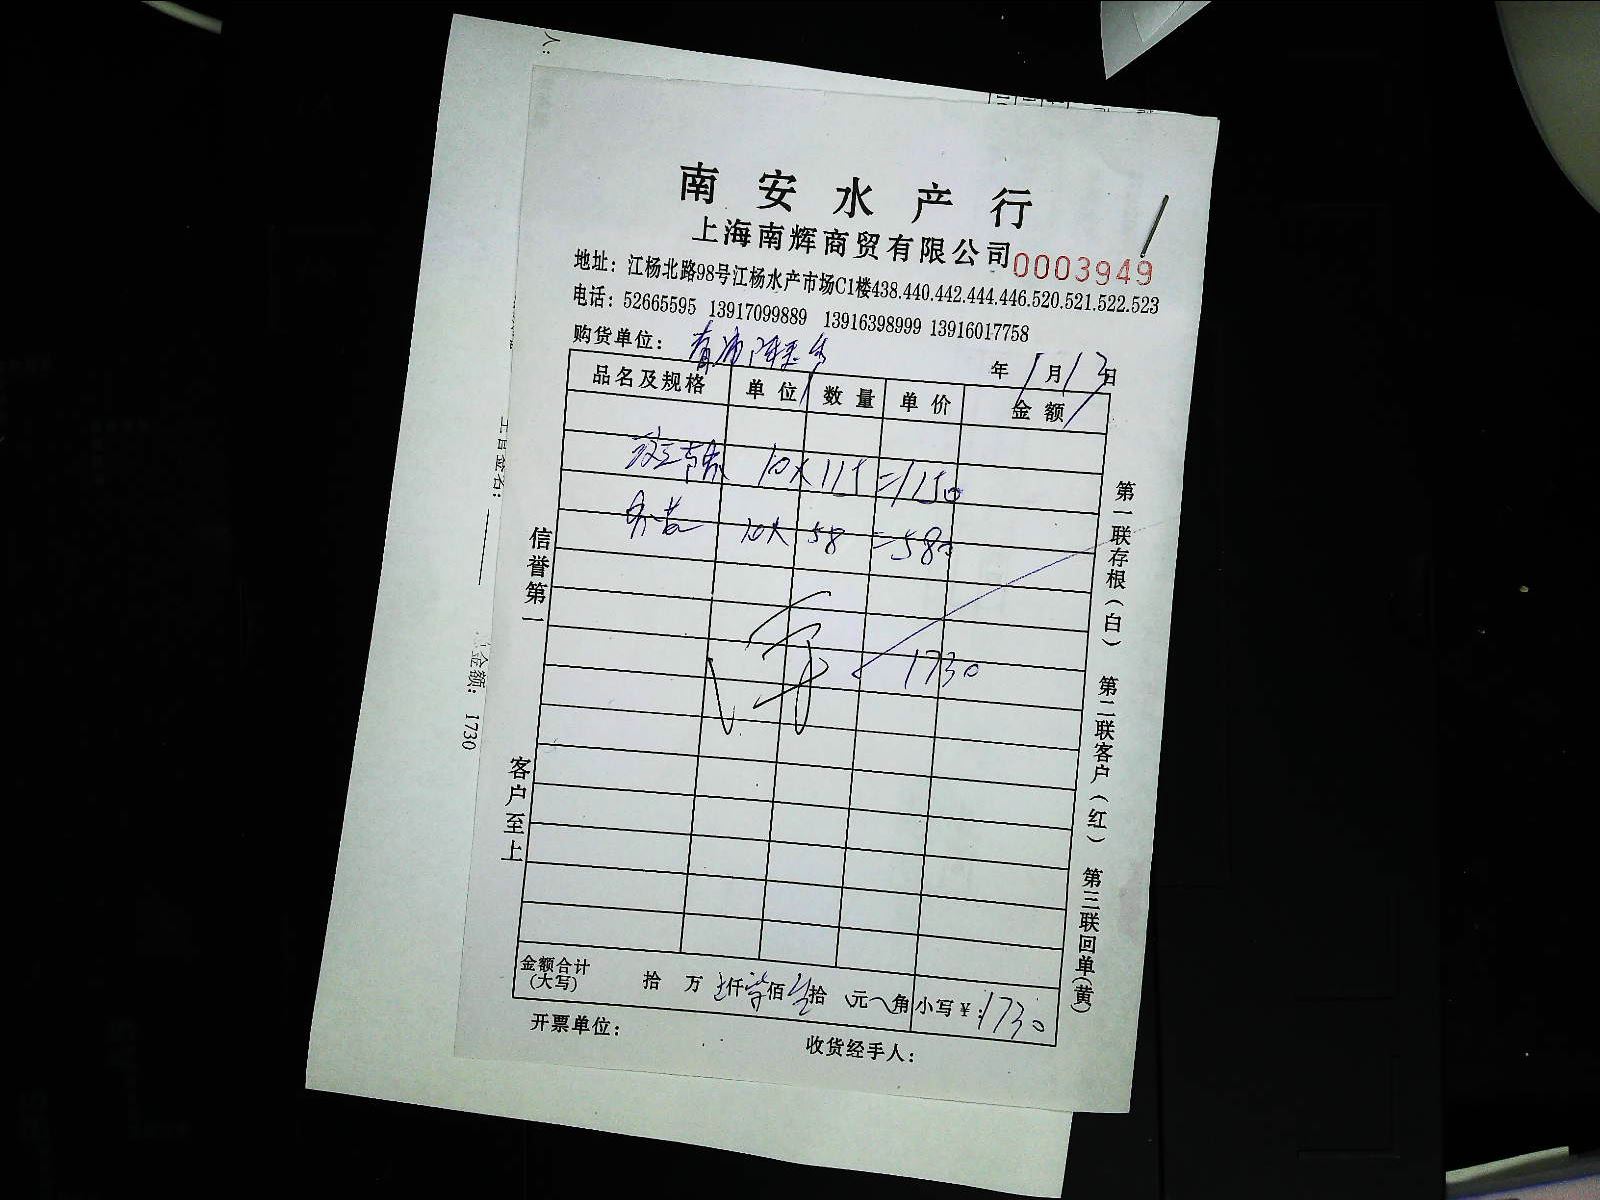 南安水产行
上海南辉商贸有限公司 0003949
地址：江杨北路98号江杨水产市场C1楼438.440.442.444.446.520.521.522.523
电话：52665595 13917099889 13916398999 13916017758
购货单位：
年 1 月 13 日
品名及规格 单位 数量 单价 金额
10 × 115 = 1150
10 × 58 = 580
1730
金额合计 拾 万 壹仟柒佰叁拾 元 角 小写￥：1730
(大写)
开票单位：
收货经手人：
信誉第一 客户至上
第一联存根(白) 第二联客户(红) 第三联回单(黄)
人：
金额： 1730